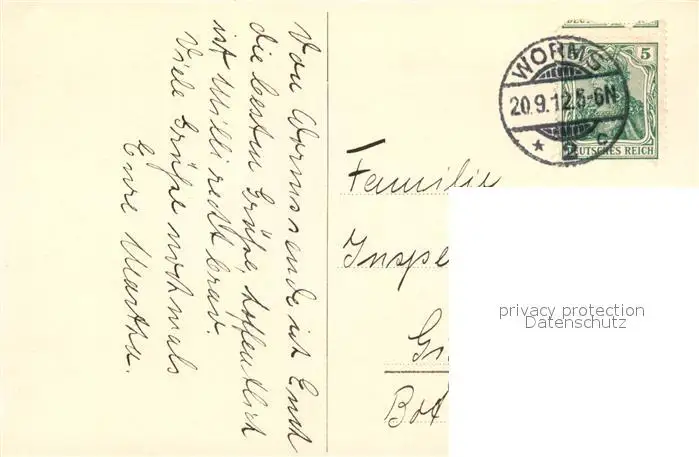 Von Worms sende ich Euch
die besten Grüße, hoffentlich
ist Willi recht brav.
Viele Grüße nochmals
Eure Martha.
WORMS
20.9.12.5-6N
* 2 c
5
DEUTSCHES REICH
Familie
Inspe
Bot
privacy protection
Datenschutz